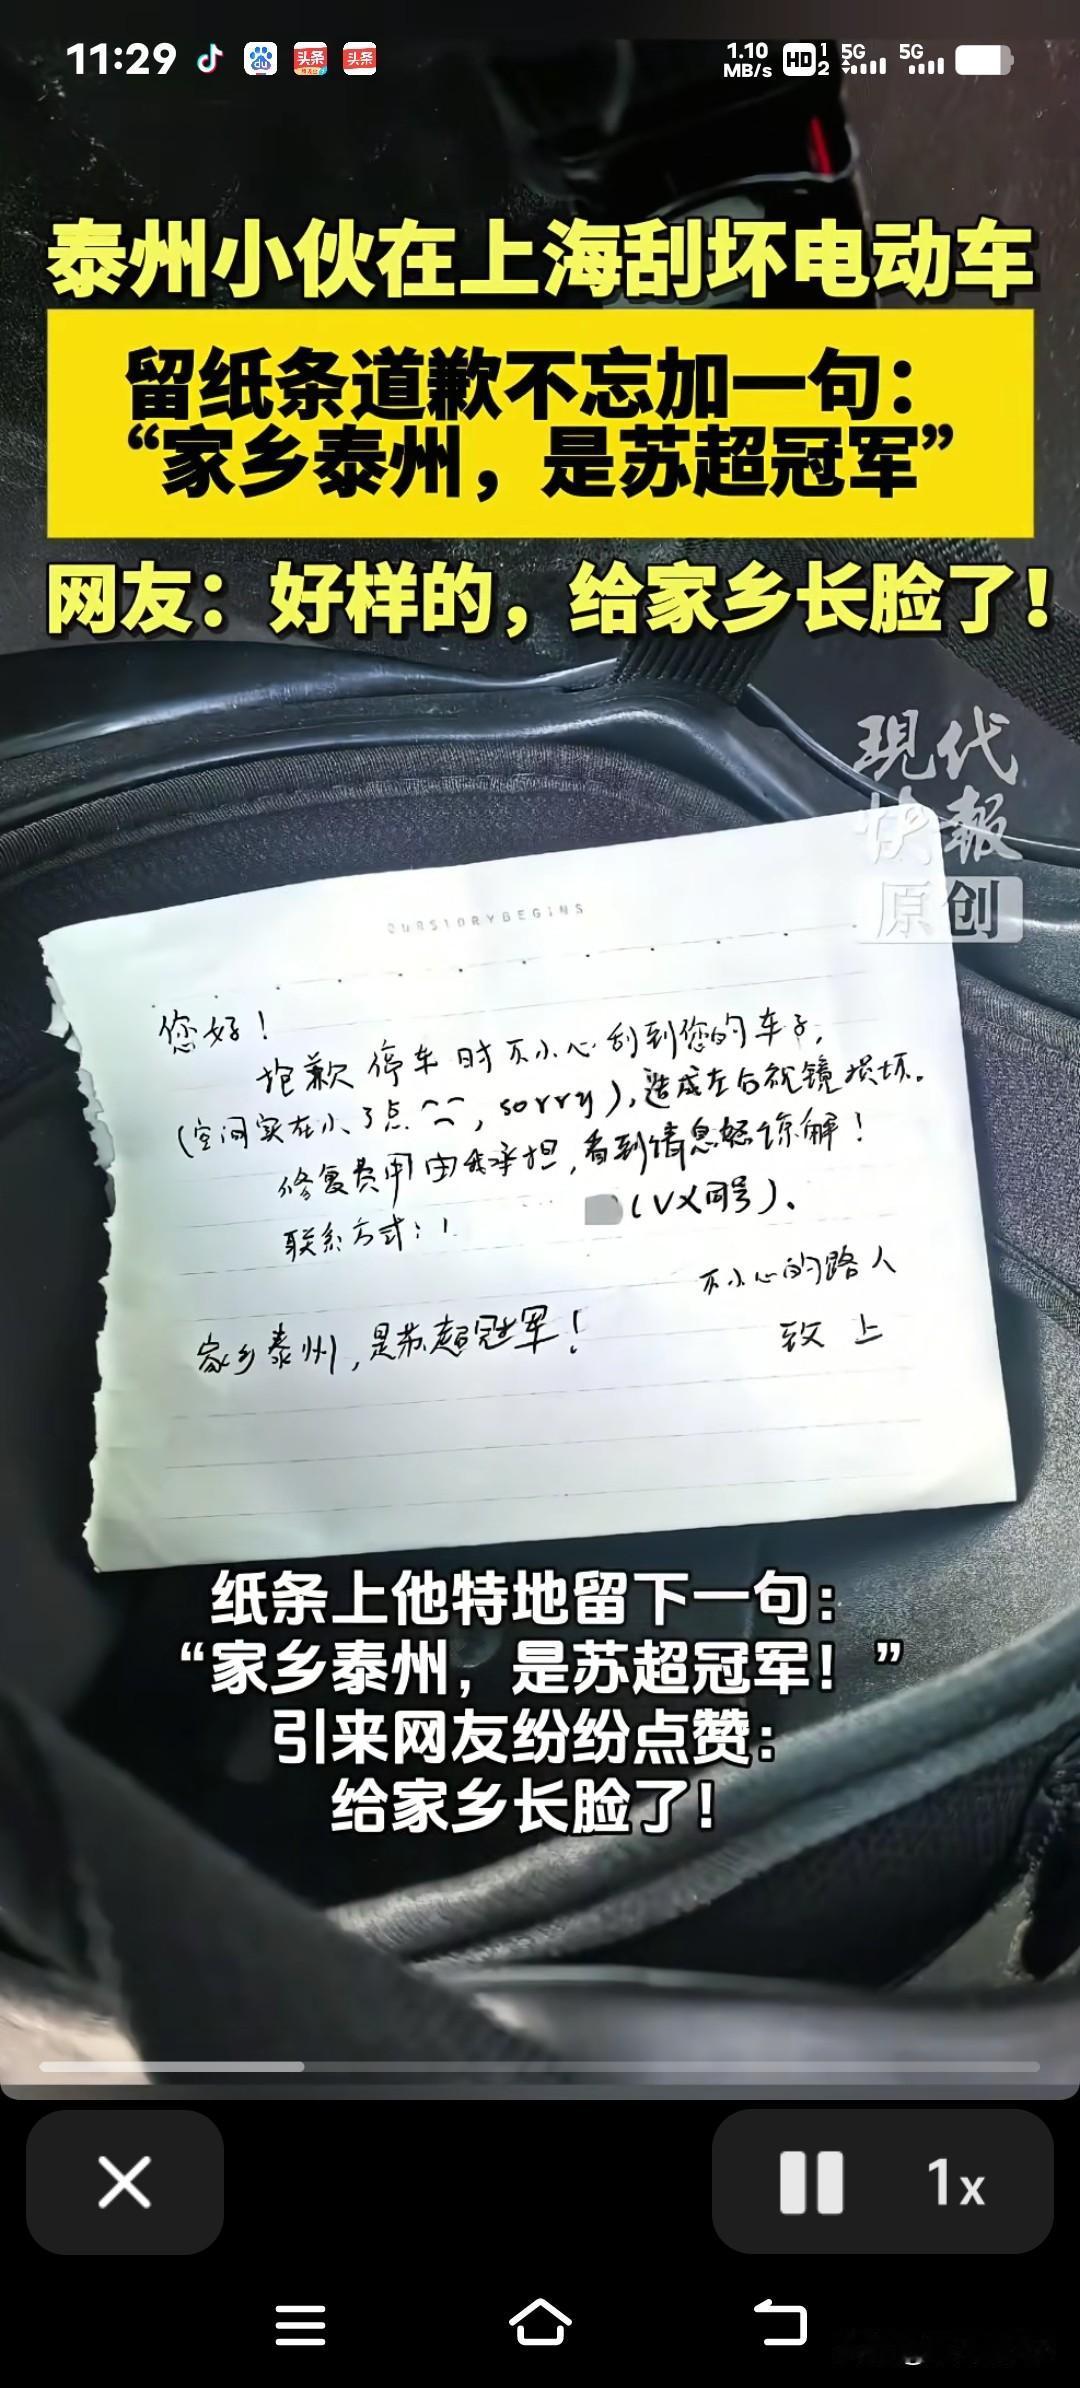 11:29
du
头条
头条
1.10
MB/s
HD 1
2
5G
5G
泰州小伙在上海刮坏电动车
留纸条道歉不忘加一句：
“家乡泰州，是苏超冠军”
网友：好样的，给家乡长脸了！
現代
快報
原创
OURSTORYBEGINS
您好！
抱歉停车时不小心刮到您的车子，
（空间实在小了点⌒⌒，sorry），造成左后视镜损坏。
修复费用由我承担，看到信息望谅解！
联系方式：1
（VX同号）。
不小心的路人
致上
家乡泰州，是苏超冠军！
纸条上他特地留下一句：
“家乡泰州，是苏超冠军！”
引来网友纷纷点赞：
给家乡长脸了！
1x